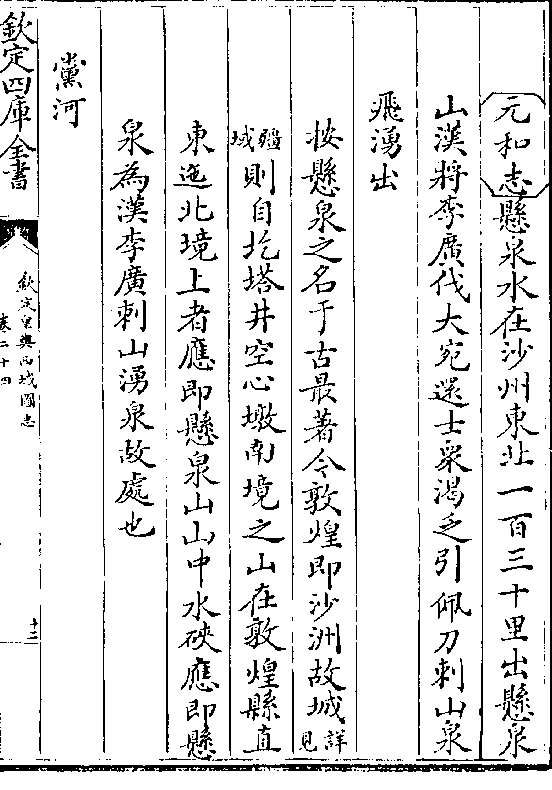 元和志懸泉水在沙州東北一百三十里出懸泉
山漢將李廣伐大宛還士衆渴乏引佩刀刺山泉
飛湧出
按懸泉之名于古最著今敦煌即沙洲故城詳見
疆域則自圪塔井空心墩南境之山在敦煌縣直
東迤北境上者應即懸泉山山中水硤應即懸
泉為漢李廣刺山湧泉故處也
黨河
欽定四庫全書
欽定皇輿西域圖志
卷二十四
十二